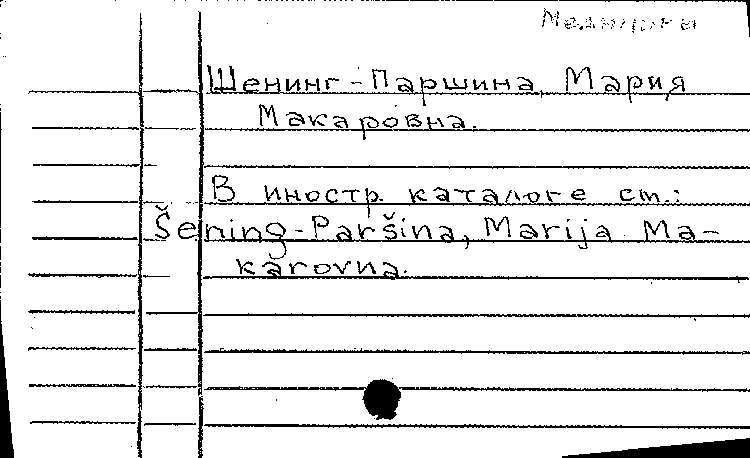 Шенинг-Паршина, Мария
Макаровна.
В иностр. каталоге см.:
Šening-Paršina, Marija Ma-
karovna.